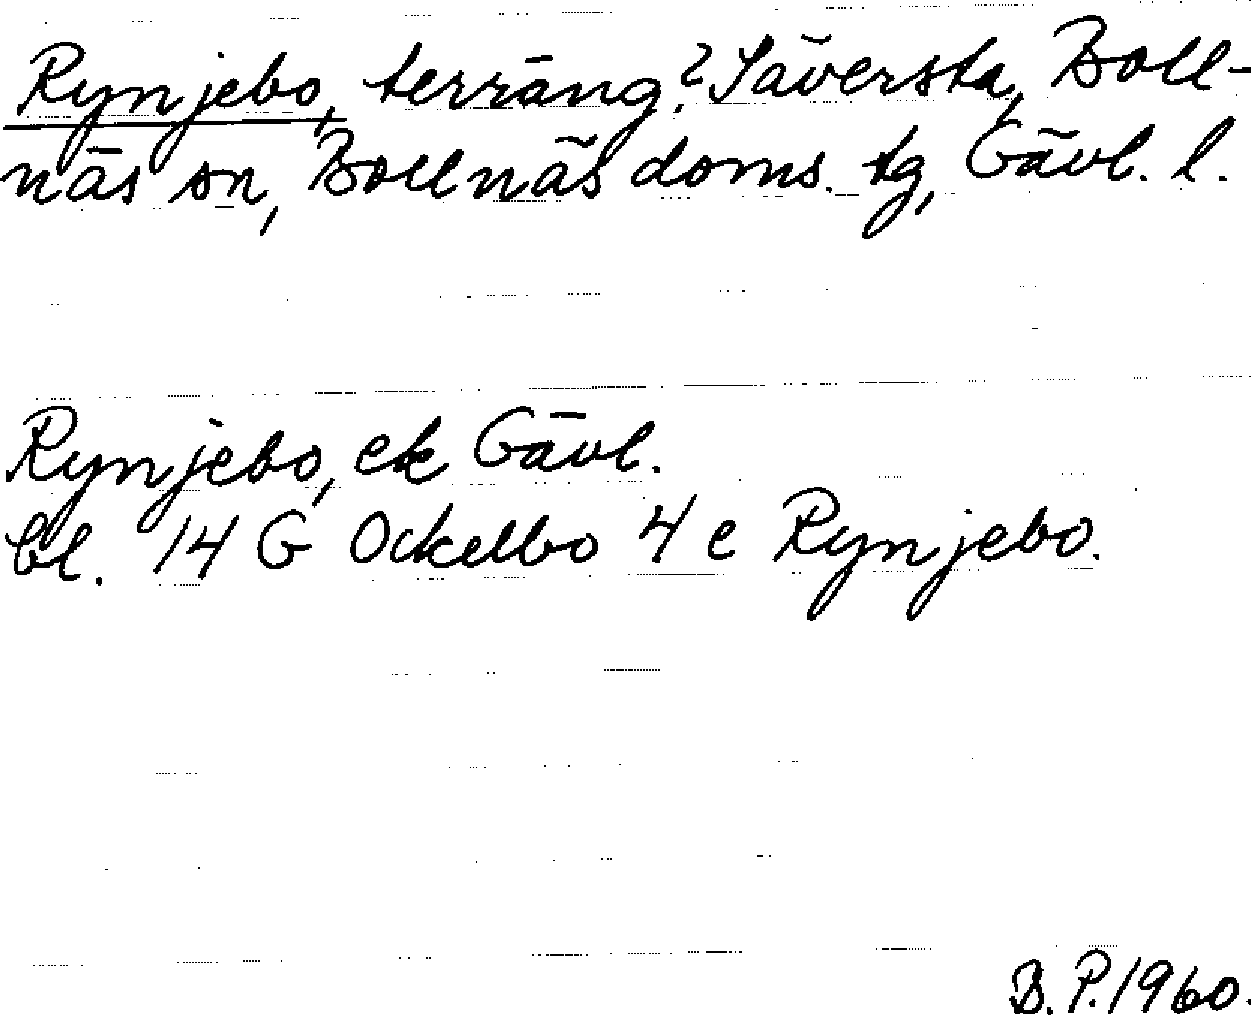 Rynjebo, terräng? Säversta, Boll-
näs sn, Bollnäs doms. tg, Gävl. l.
Rynjebo, ek Gävl.
bl. 14 G Ockelbo 4 e Rynjebo.
B. P. 1960.